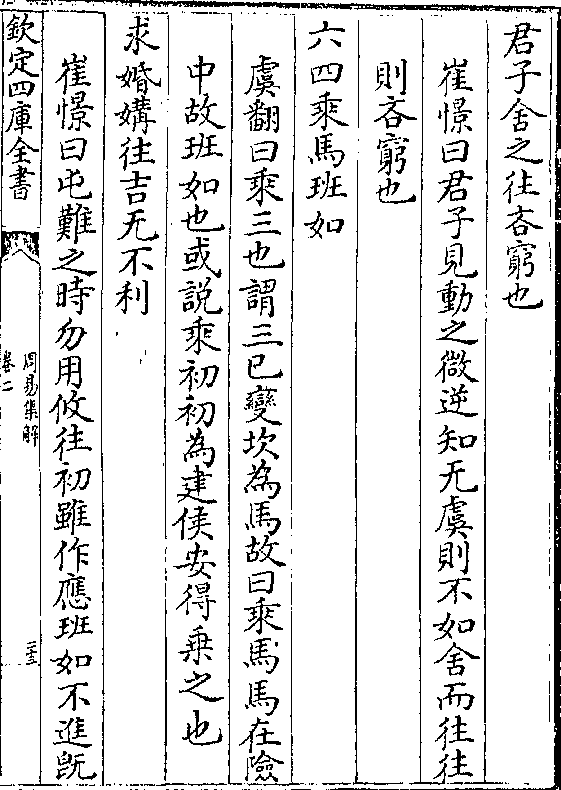 君子舍之往吝窮也
崔憬曰君子見動之微逆知无虞則不如舍而往往
則吝窮也
六四乘馬班如
虞翻曰乘三也謂三已變坎為馬故曰乘馬馬在險
中故班如也或説乘初初為建侯安得乗之也
求婚媾往吉无不利
崔憬曰屯難之時勿用攸往初雖作應班如不進既
欽定四庫全書
周易集解
卷二
二三